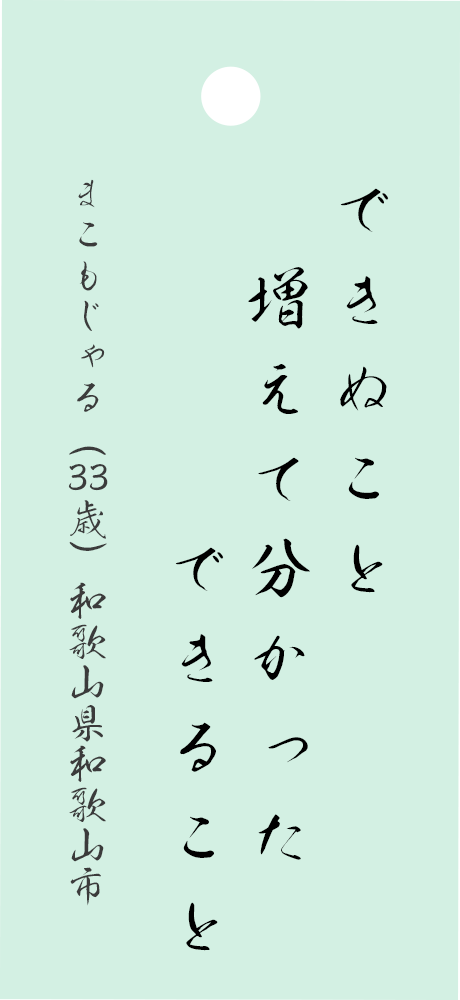 できぬこと
増えて分かった
できること
まこもじゃる（33歳）和歌山県和歌山市